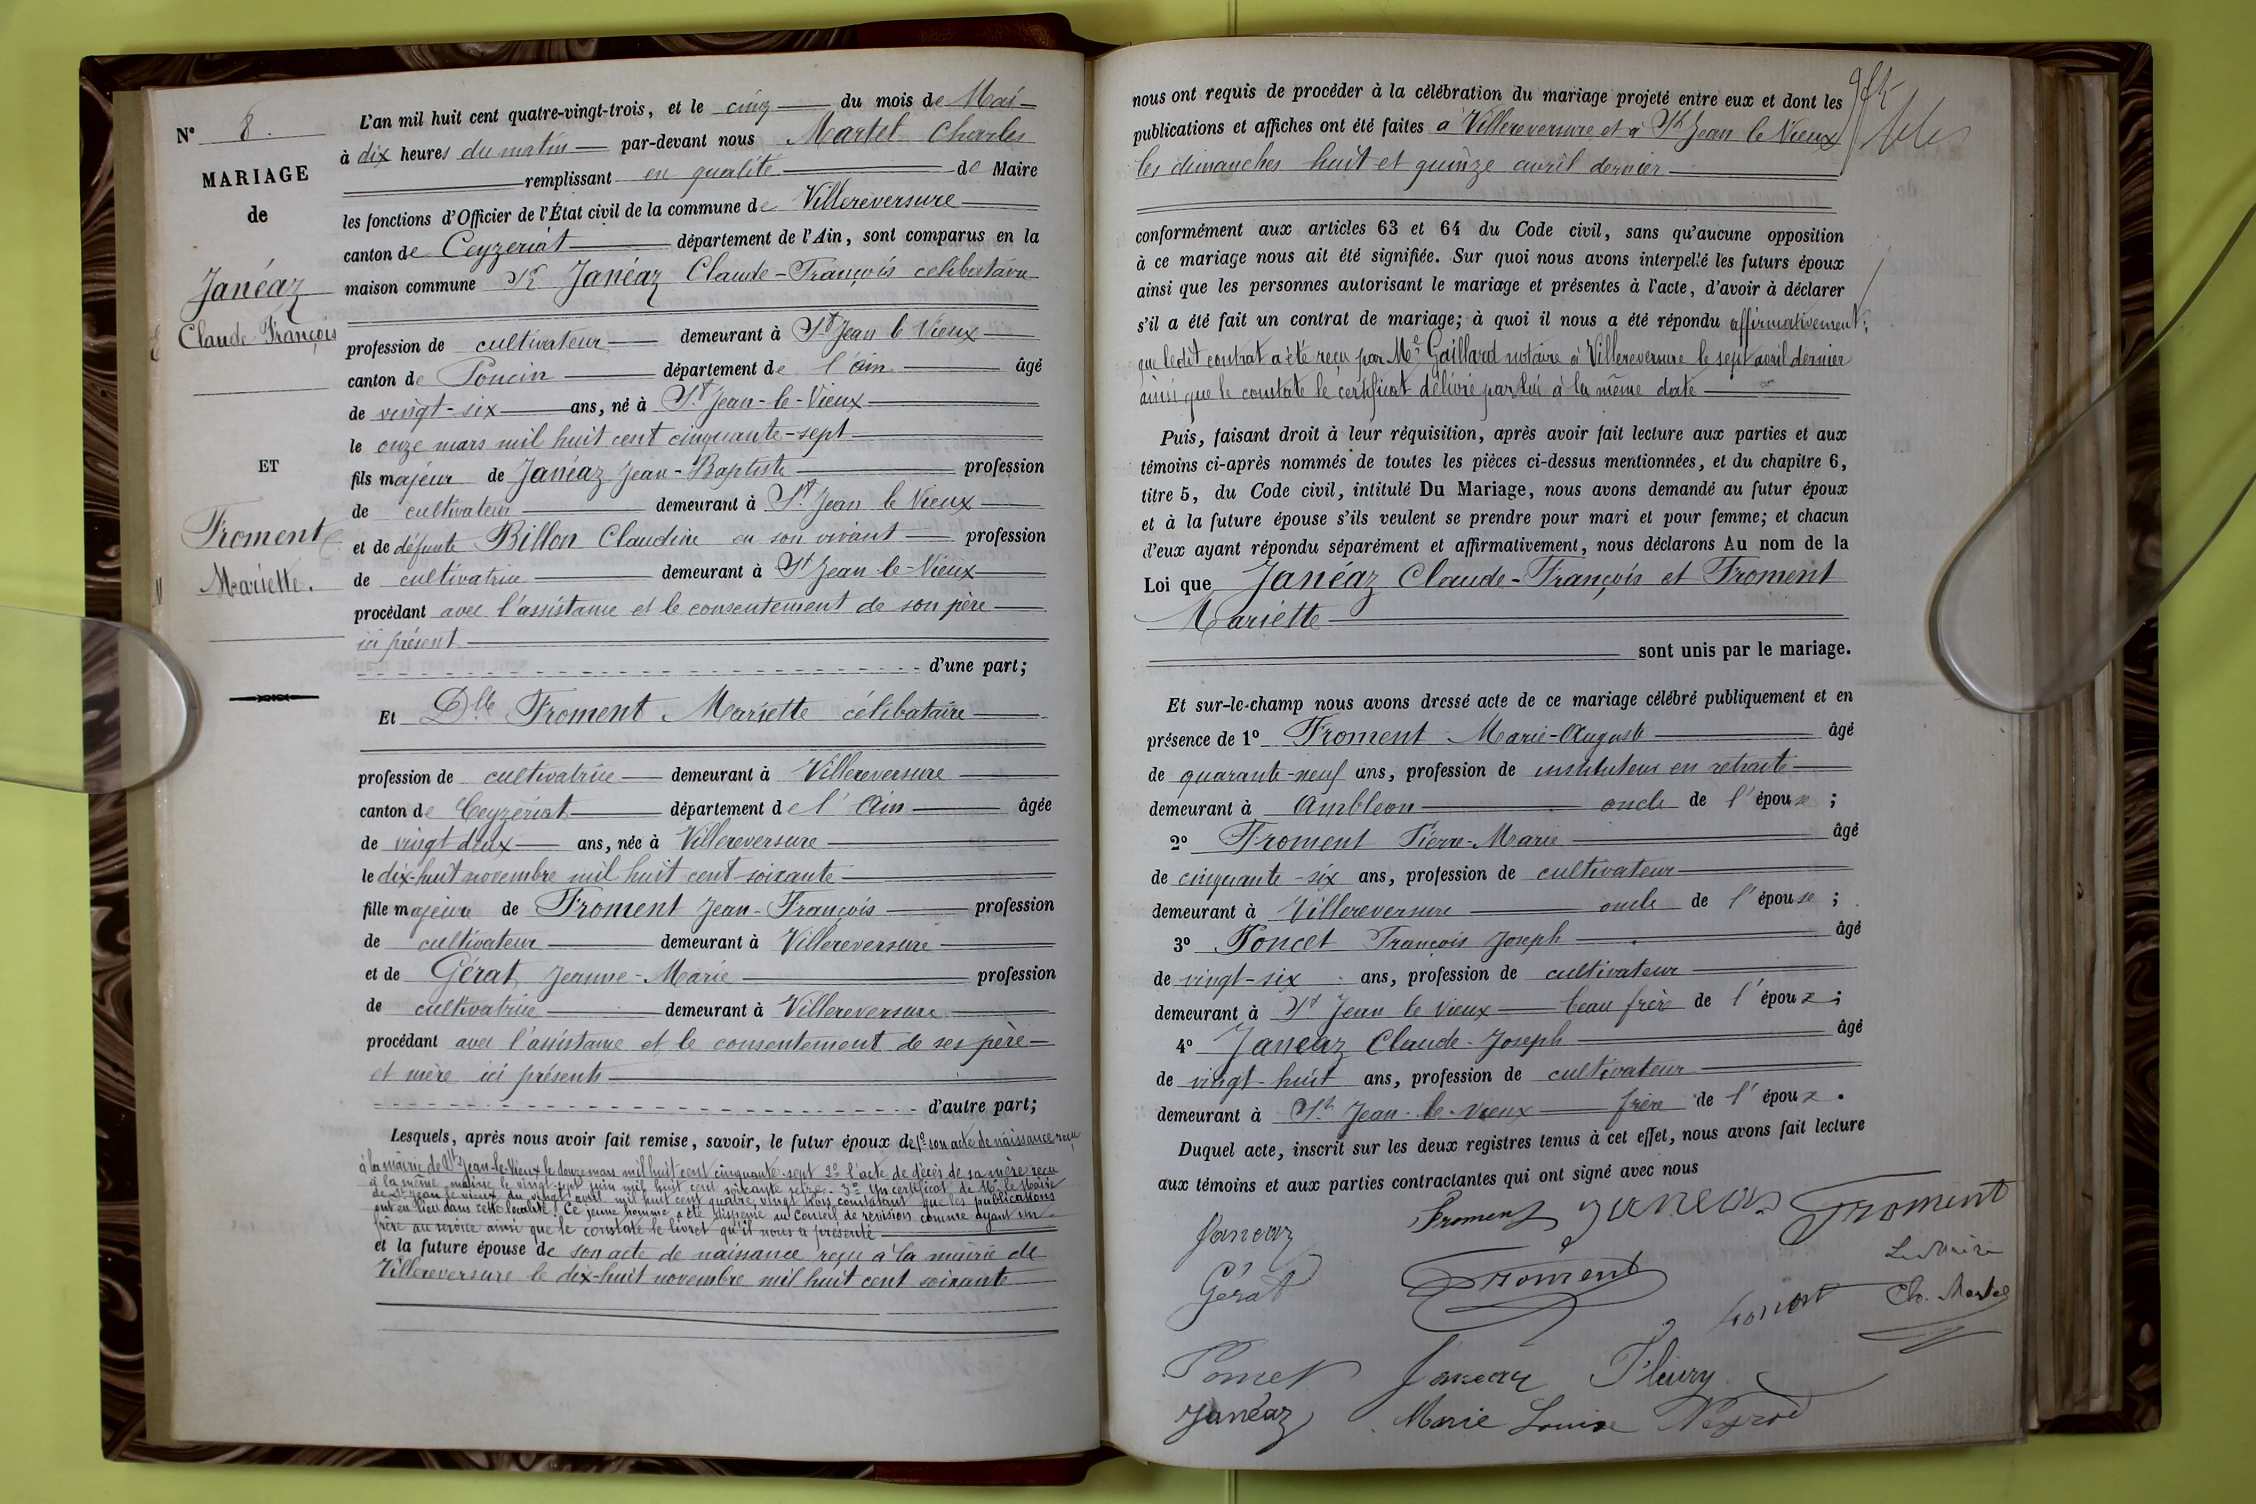 N° 8.
MARIAGE
de
Janéaz
Claude-François
ET
Froment
Mariette.
L'an mil huit cent quatre-vingt-trois, et le cinq du mois de Mai
à dix heures du matin par-devant nous Martel Charles
remplissant en qualité de Maire
les fonctions d'Officier de l'État civil de la commune de Villereversure
canton de Ceyzériat département de l'Ain, sont comparus en la
maison commune Sr Janéaz Claude-François célibataire
profession de cultivateur demeurant à St Jean le Vieux
canton de Poncin département de l'ain âgé
de vingt-six ans, né à St Jean-le-Vieux
le onze mars mil huit cent cinquante-sept
fils majeur de Janéaz Jean-Baptiste profession
de cultivateur demeurant à St Jean le Vieux
et de défunte Billon Claudine en son vivant profession
de cultivatrice demeurant à St Jean le-Vieux
procédant avec l'assistance et le consentement de son père
ici présent
d'une part;
Et Dlle Froment Mariette célibataire
profession de cultivatrice demeurant à Villereversure
canton de Ceyzériat département de l'Ain âgée
de vingt deux ans, née à Villereversure
le dix-huit novembre mil huit cent soixante
fille majeure de Froment Jean-François profession
de cultivateur demeurant à Villereversure
et de Gérat Jeanne-Marie profession
de cultivatrice demeurant à Villereversure
procédant avec l'assistance et le consentement de ses père
et mère ici présents
d'autre part;
Lesquels, après nous avoir fait remise, savoir, le futur époux de 1° son acte de naissance reçu
à la mairie de St Jean-le-Vieux le douze mars mil huit cent cinquante-sept 2° l'acte de décès de sa mère reçu
à la même mairie le vingt-sept juin mil huit cent soixante seize. 3° Un certificat de Mr le Maire
de St Jean le vieux du vingt avril mil huit cent quatre vingt trois constatant que les publications
ont eu lieu dans cette localité. Ce jeune homme a été dispensé au Conseil de révision comme ayant un
frère au service ainsi que le constate le livret qu'il nous a présenté
et la future épouse de son acte de naissance reçu à la mairie de
Villereversure le dix-huit novembre mil huit cent soixante
nous ont requis de procéder à la célébration du mariage projeté entre eux et dont les
publications et affiches ont été faites à Villereversure et à St Jean le Vieux
les dimanches huit et quinze avril dernier
conformément aux articles 63 et 64 du Code civil, sans qu'aucune opposition
à ce mariage nous ait été signifiée. Sur quoi nous avons interpellé les futurs époux
ainsi que les personnes autorisant le mariage et présentes à l'acte, d'avoir à déclarer
s'il a été fait un contrat de mariage; à quoi il nous a été répondu affirmativement;
que ledit contrat a été reçu par Me Gaillard notaire à Villereversure le sept avril dernier
ainsi que le constate le certificat délivré par lui à la même date
Puis, faisant droit à leur réquisition, après avoir fait lecture aux parties et aux
témoins ci-après nommés de toutes les pièces ci-dessus mentionnées, et du chapitre 6,
titre 5, du Code civil, intitulé Du Mariage, nous avons demandé au futur époux
et à la future épouse s'ils veulent se prendre pour mari et pour femme; et chacun
d'eux ayant répondu séparément et affirmativement, nous déclarons Au nom de la
Loi que Janéaz Claude-François et Froment
Mariette
sont unis par le mariage.
Et sur-le-champ nous avons dressé acte de ce mariage célébré publiquement et en
présence de 1° Froment Marie-Auguste âgé
de quarante-neuf ans, profession de instituteur en retraite
demeurant à Ambléon oncle de l'épouse;
2° Froment Pierre-Marie âgé
de cinquante-six ans, profession de cultivateur
demeurant à Villereversure oncle de l'épouse;
3° Poncet François Joseph âgé
de vingt-six ans, profession de cultivateur
demeurant à St Jean le Vieux beau frère de l'époux;
4° Janéaz Claude-Joseph âgé
de vingt-huit ans, profession de cultivateur
demeurant à St Jean-le-Vieux frère de l'époux.
Duquel acte, inscrit sur les deux registres tenus à cet effet, nous avons fait lecture
aux témoins et aux parties contractantes qui ont signé avec nous
Janeaz Froment Janeaz Froment
Gérat Froment Le Maire
Ch. Martel
Poncet Janeaz Fleury
Janéaz Marie Louise